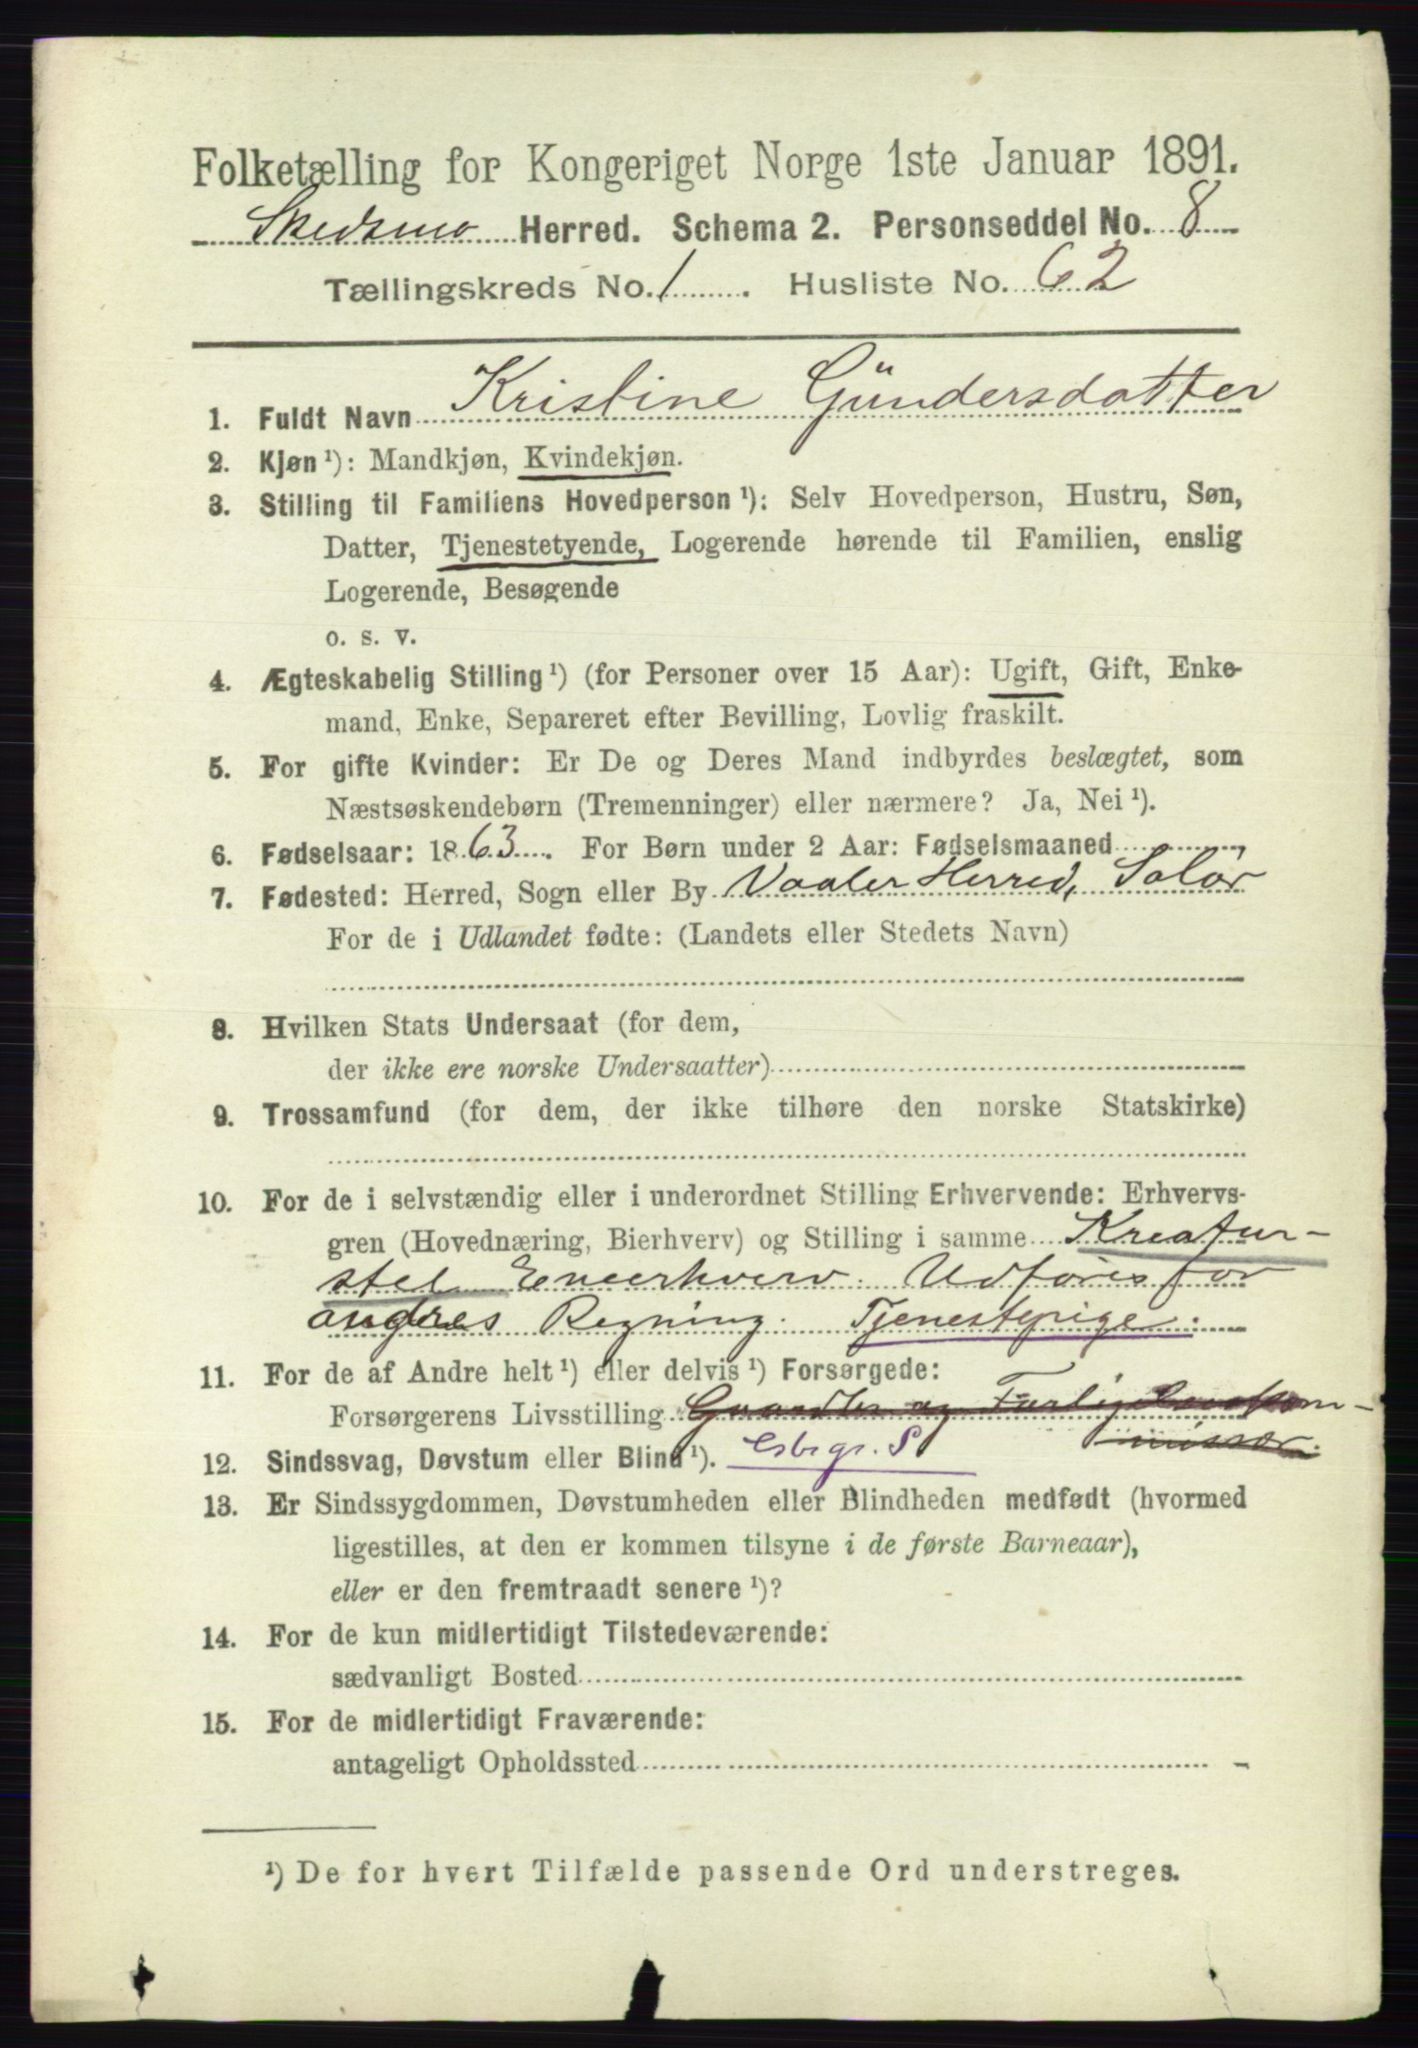 Folketælling for Kongeriget Norge 1ste Januar 1891.
Skedsmo Herred. Schema 2. Personseddel No. 8
Tællingskreds No. 1. Husliste No. 62
1. Fuldt Navn Kristine Gündersdatter
2. Kjøn ¹): Mandkjøn, Kvindekjøn.
3. Stilling til Familiens Hovedperson ¹): Selv Hovedperson, Hustru, Søn,
Datter, Tjenestetyende, Logerende hørende til Familien, enslig
Logerende, Besøgende
o. s. v.
4. Ægteskabelig Stilling ¹) (for Personer over 15 Aar): Ugift, Gift, Enke-
mand, Enke, Separeret efter Bevilling, Lovlig fraskilt.
5. For gifte Kvinder: Er De og Deres Mand indbyrdes beslægtet, som
Næstsøskendebørn (Tremenninger) eller nærmere? Ja, Nei ¹).
6. Fødselsaar: 1863. For Børn under 2 Aar: Fødselsmaaned
7. Fødested: Herred, Sogn eller By Vaaler Herred, Solör
For de i Udlandet fødte: (Landets eller Stedets Navn)
8. Hvilken Stats Undersaat (for dem,
der ikke ere norske Undersaatter)
9. Trossamfund (for dem, der ikke tilhøre den norske Statskirke)
10. For de i selvstændig eller i underordnet Stilling Erhvervende: Erhvervs-
gren (Hovednæring, Bierhverv) og Stilling i samme Kreatur-
stel Eneerhverv. Udföres for
andres Regning. Tjenestepige.
11. For de af Andre helt ¹) eller delvis ¹) Forsørgede:
Forsørgerens Livsstilling og
12. Sindssvag, Døvstum eller Blind ¹).
13. Er Sindssygdommen, Døvstumheden eller Blindheden medfødt (hvormed
ligestilles, at den er kommen tilsyne i de første Barneaar),
eller er den fremtraadt senere ¹)?
14. For de kun midlertidigt Tilstedeværende:
sædvanligt Bosted
15. For de midlertidigt Fraværende:
antageligt Opholdssted
¹) De for hvert Tilfælde passende Ord understreges.